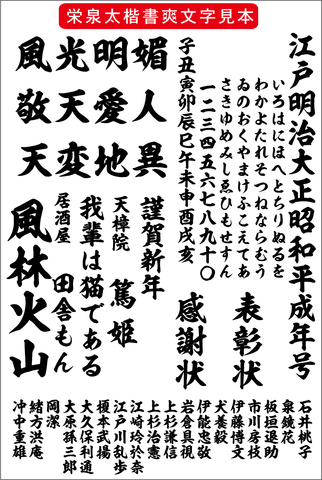 栄泉太楷書爽文字見本
江戸明治大正昭和平成年号
いろはにほへとちりぬるを
わかよたれそつねならむう
ゐのおくやまけふこえてあ
さきゆめみしゑひもせすん
一二三四五六七八九十〇
子丑寅卯辰巳午未申酉戌亥
風光明媚
敬天愛人
天変地異
表彰状
感謝状
謹賀新年
天樟院
篤姫
我輩は猫である
居酒屋
田舎もん
風林火山
石井桃子
泉鏡花
板垣退助
市川房枝
伊藤博文
犬養毅
伊能忠敬
岩倉具視
上杉謙信
上杉治憲
江崎玲於奈
江戸川乱歩
榎本武揚
大久保利通
大原孫三郎
岡潔
緒方洪庵
沖中重雄